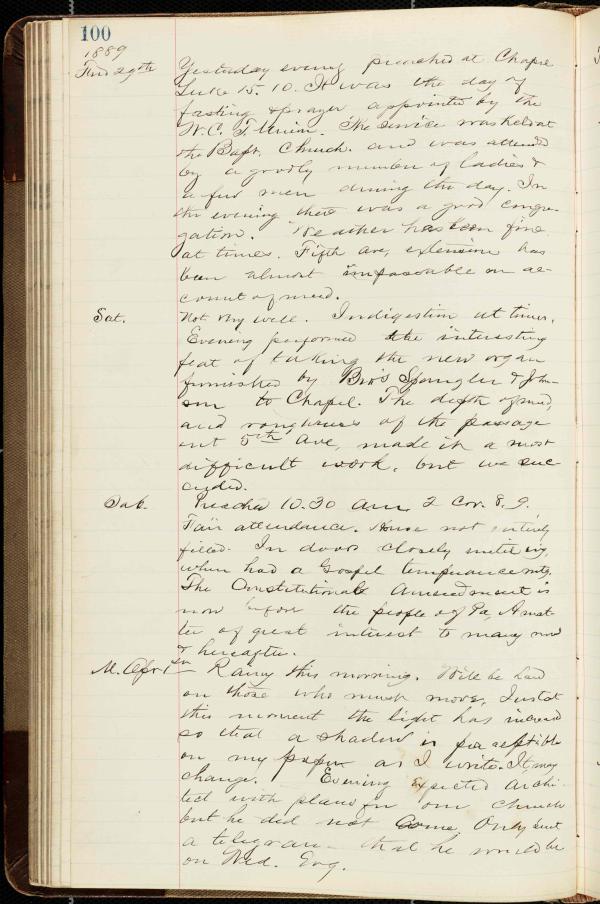 100
1889
29th Yesterday evening preached at Chapel
Luke 15. 10. It was the day of
fasting & prayer appointed by the
W. C. T. Union. The service was held at
the Bapt. Church. and was attended
by a goodly number of ladies &
a few men during the day. In
the evening there was a good congre-
gation. Weather has been fine
at times. Fifth ave, extension has
been almost impassable on ac-
count of mud.
Sat. Not very well. Indigestion at times.
Evening performed the interesting
feat of taking the new organ
furnished by Bro's Spangler & John-
son to Chapel. The depth of mud,
and roughness of the passage
out 5th Ave, made it a most
difficult work, but we suc
ceeded.
Sab. Preached 10.30 am 2 Cor. 8. 9.
Fair attendance. House not entirely
filled. In doors closely until evg,
when had a Gospel temperance mtg.
The Constitutional Amendment is
now before the people of Pa, A mat-
ter of great interest to many now
& hereafter.
M. Apr 1st Rainy this morning. Will be hard
on those who must move, Just at
this moment the light has increased
so that a shadow is perceptible
on my paper as I write. It may
change. Evening Expected archi-
tect with plans for our church
but he did not Come, Only sent
a telegram that he would be
on Wed. Evg.